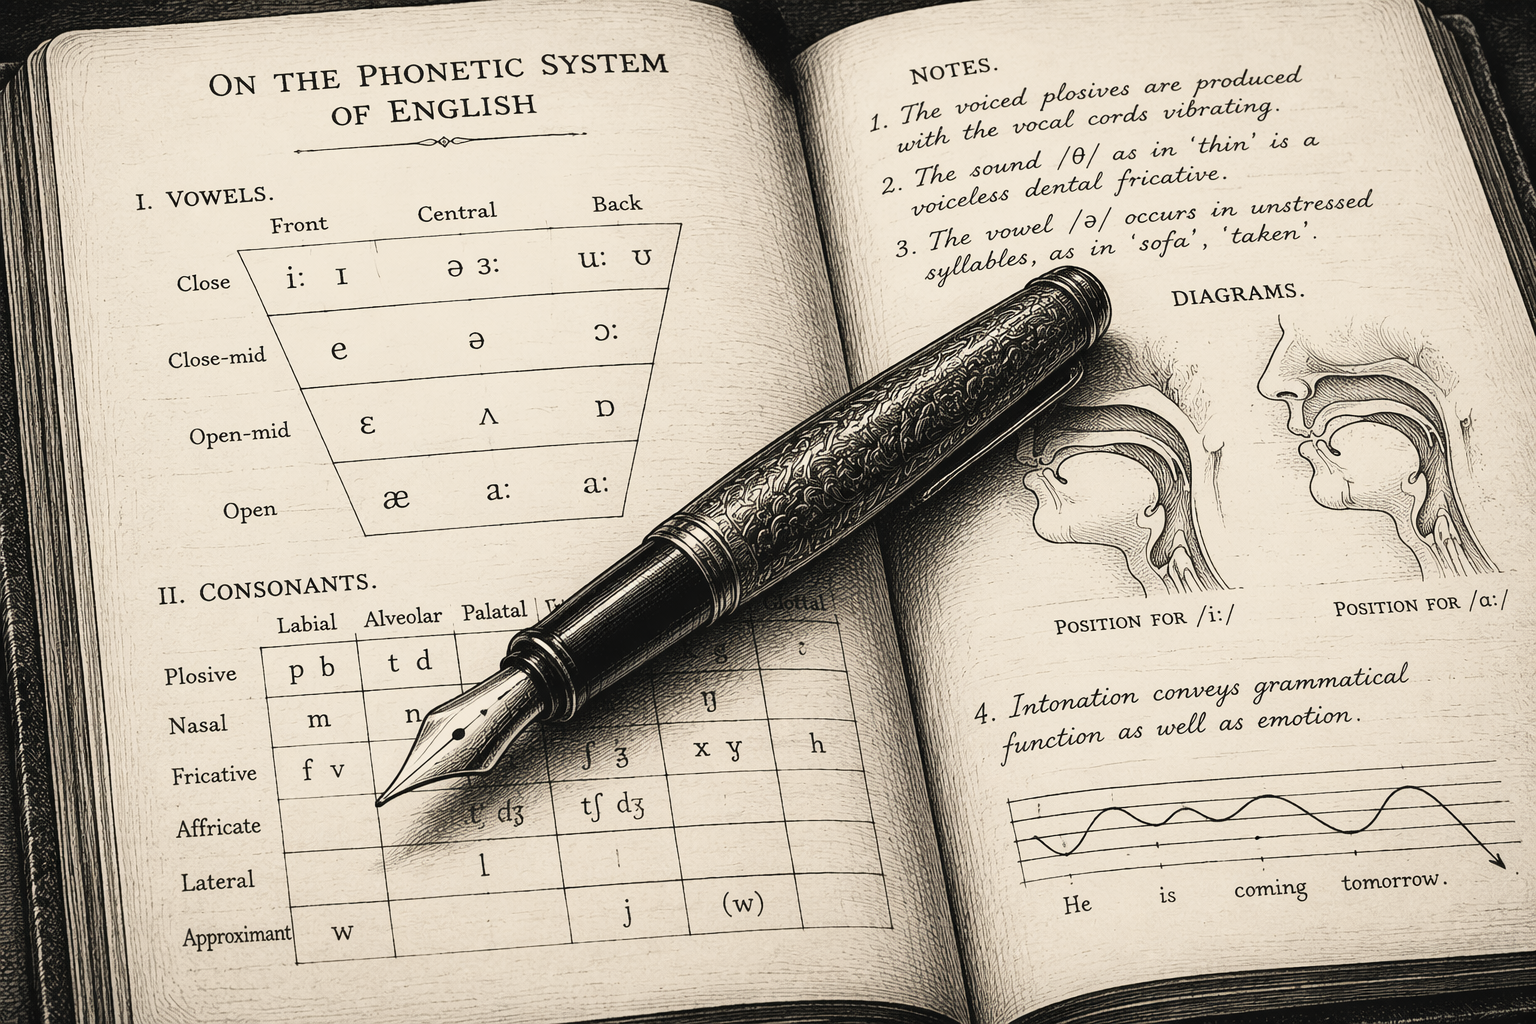 ON THE PHONETIC SYSTEM
OF ENGLISH
I. VOWELS.
Front Central Back
Close i: ɪ ə ɜ: u: ʊ
Close-mid e ə ɔ:
Open-mid ɛ ʌ ɒ
Open æ a: a:
II. CONSONANTS.
Labial Alveolar Palatal Glottal
Plosive p b t d
Nasal m n ŋ
Fricative f v ʃ ʒ x y h
Affricate dʒ tʃ dʒ
Lateral l
Approximant w j (w)
NOTES.
1. The voiced plosives are produced
with the vocal cords vibrating.
2. The sound /θ/ as in ‘thin’ is a
voiceless dental fricative.
3. The vowel /ə/ occurs in unstressed
syllables, as in ‘sofa’, ‘taken’.
DIAGRAMS.
POSITION FOR /i:/ POSITION FOR /ɑ:/
4. Intonation conveys grammatical
function as well as emotion.
He is coming tomorrow.